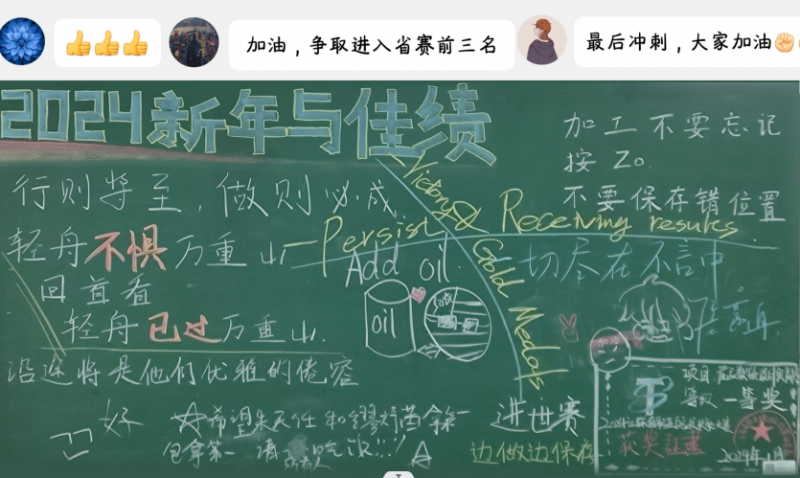 加油，争取进入省赛前三名
最后冲刺，大家加油
2024新年与佳绩
加工不要忘记
按Z0
不要保存错位置
行则将至，做则必成
轻舟不惧万重山
回首看
轻舟已过万重山.
沿途将是他们优雅的倦容
Persist
Victory &
Gold Medals
Receiving results
Add oil
oil
一切尽在不言中
加油
项目
等级 一等奖
获奖证书
2024年1月
好
希望朱天任和缪
拿第一
包拿第一 请 吃饭!!!
所有人
进世赛
边做边保存